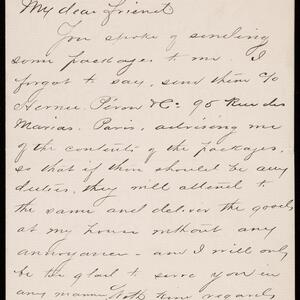 My dear friend
You spoke of sending
some packages to me. I
forgot to say, send them c/o
Hernu. Péron & Co. 95 Rue des
Marais. Paris, advising me
of the contents of the packages.
so that if there should be any
duties, they will attend to
the same and deliver the goods
at my house without any
annoyance - and I will only
be too glad to serve you in
any manner With kind regards